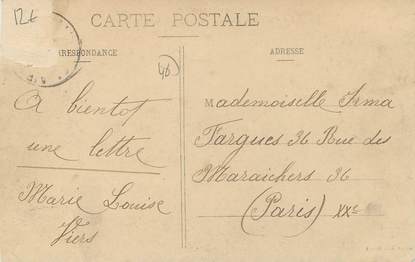 12€
CARTE POSTALE
RRESPONDANCE
ADRESSE
46
A bientot
une lettre
Marie Louise
Viers
Mademoiselle Irma
Fargues 36 Rue des
Maraichers 36
(Paris) XXe